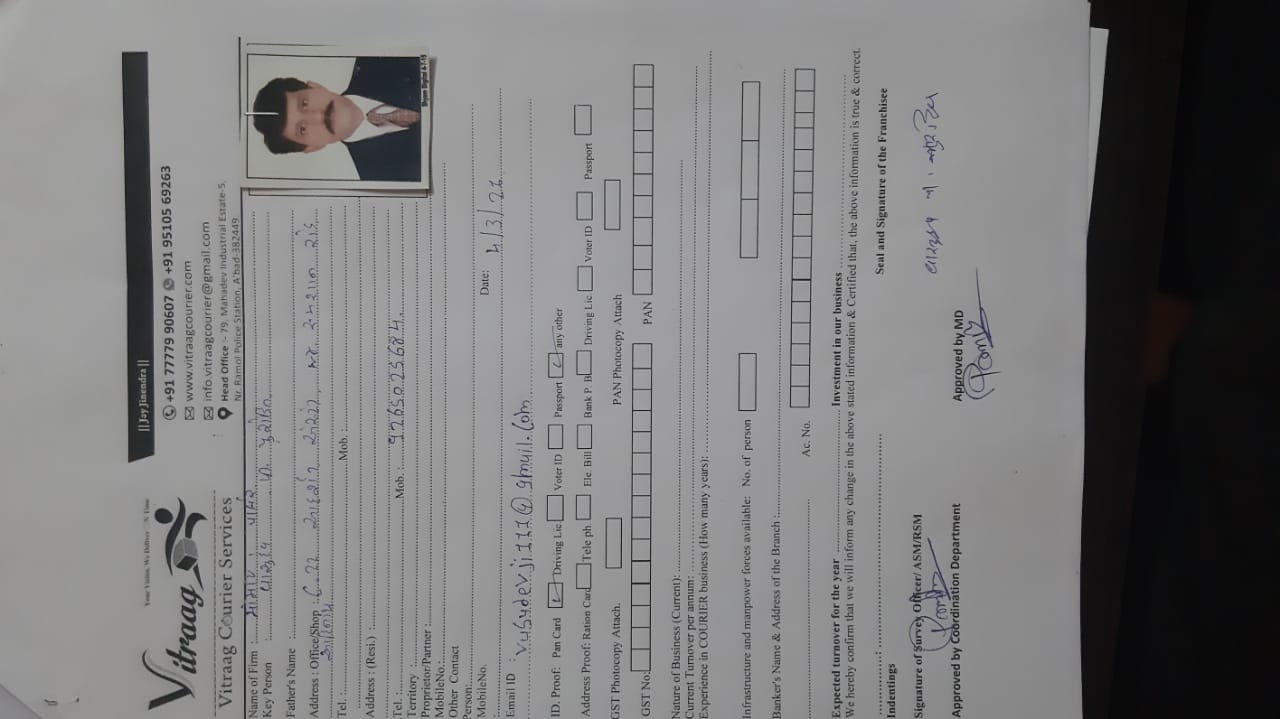 || Jay Jinendra ||
Vitraag
Your Vision, We Deliver ON Time
Vitraag Courier Services
+91 77779 90607 +91 95105 69263
www.vitraagcourier.com
info.vitraagcourier@gmail.com
Head Office :- 79, Mahadev Industrial Estate-5,
Nr. Ramol Police Station, A'bad-382449.
Name of Firm :
Key Person :
Father's Name :
Address : Office/Shop :
Tel. : Mob. :
Address : (Resi.) :
Tel. : Mob. : 9265025684.
Territory :
Proprietor/Partner :
MobileNo :
Other Contact
Person:
MobileNo. Date: 4/3/26
Email ID : vasudevji111@gmail.com
ID. Proof: Pan Card Driving Lic Voter ID Passport any other
Address Proof: Ration Card Tele ph Ele. Bill Bank P. B. Driving Lic Voter ID Passport
GST Photocopy Attach. PAN Photocopy Attach
GST No: PAN
Nature of Business (Current):
Current Turnover per annum :
Experience in COURIER business (How many years):
Infrastructure and manpower forces available: No. of person
Banker's Name & Address of the Branch :
Ac. No.
Expected turnover for the year Investment in our business
We hereby confirm that we will inform any change in the above stated information & Certified that, the above information is true & correct.
Indentings Seal and Signature of the Franchisee
Signature of Survey Officer/ ASM/RSM
Approved by Coordination Department Approved by MD